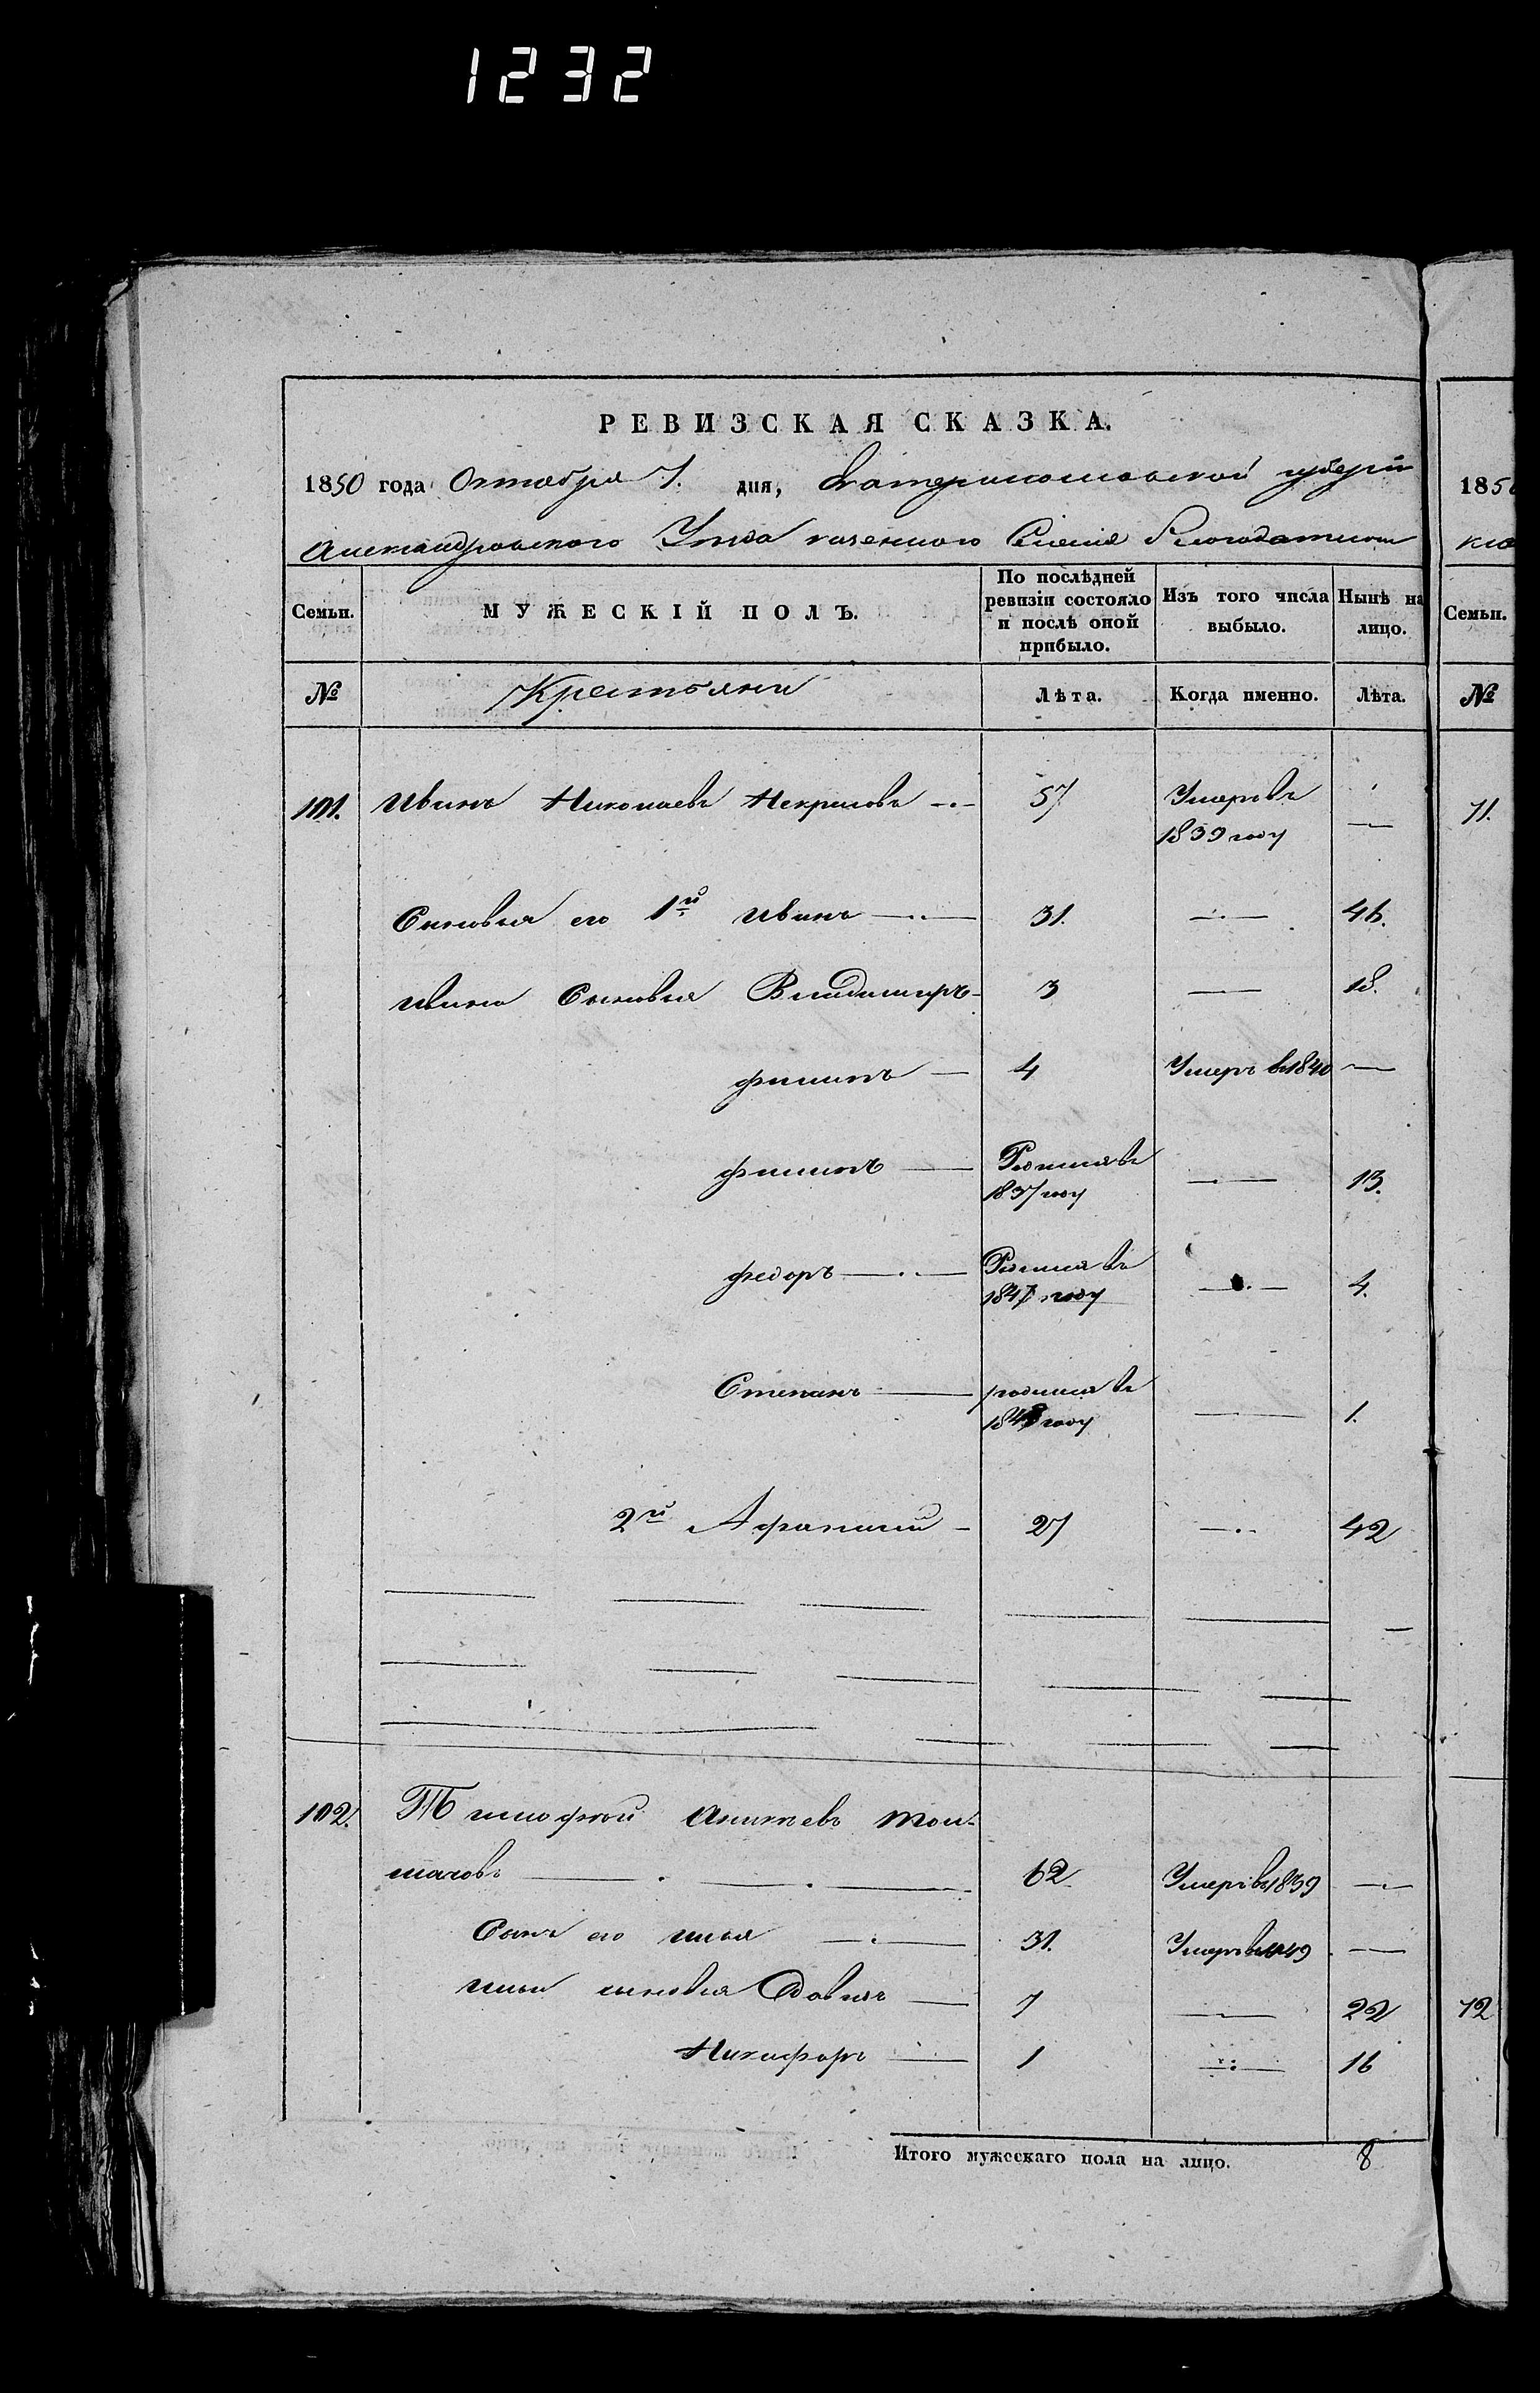 1232
РЕВИЗСКАЯ СКАЗКА.
1850 года Октября 7. дня, Екатеринославской губерніи 185
Александровского Уезда казенного Селенія Благодатного
Семьи. МУЖЕСКІЙ ПОЛЪ. По послѣдней ревизіи состояло и послѣ оной прибыло. Изъ того числа выбыло. Нынѣ на лицо. Семьи.
№ Крестьяни Лѣта. Когда именно. Лѣта. №
101. Иванъ Николаевъ Некрасовъ 57 Умеръ въ 71.
1839 году
Сыновья его 1й Иванъ 31. 46.
Ивана Сыновья Владимиръ 3 18.
Филипъ 4 Умеръ въ 1840
Филипъ Родился въ 13.
1837 году
Федоръ Родился въ 4.
1847 году
Степанъ родился въ 1.
году
2й Афанасий 27 42
102. Тимофей Аникеевъ Тол-
мачовъ 62 Умеръ въ 1839
Сынъ его Илья 31. Умеръ въ 1849
Ильи сыновья Давидъ 7 22 72
Никифоръ 1 16
Итого мужескаго пола на лицо. 8